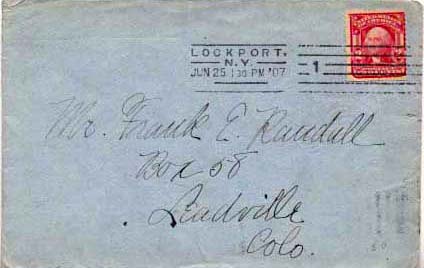 LOCKPORT,
N.Y.
JUN 25 1 30 PM '07
1
Mr. Frank E. Randall
Box 58
Leadville
Colo.